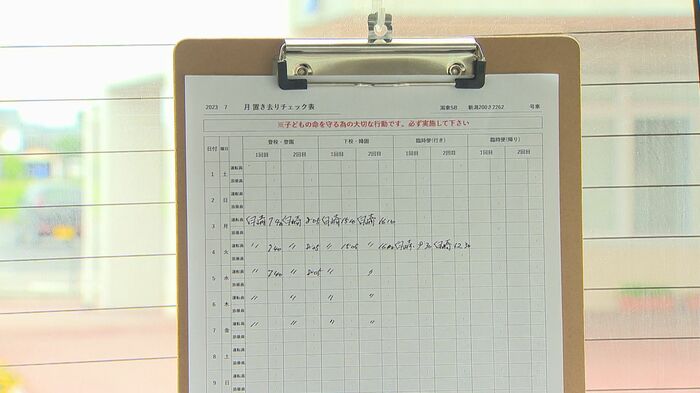 2023 7 月 置き去りチェック表 潟東SB 新潟200さ2262 号車
※子どもの命を守る為の大切な行動です。必ず実施して下さい
日付 曜日 登校・登園 下校・降園 臨時便(行き) 臨時便(帰り)
1回目 2回目 1回目 2回目 1回目 2回目 1回目 2回目
1 土 運転員
添乗員
2 日 運転員
添乗員
3 月 運転員 7:40 8:05 15:10 16:10
添乗員
4 火 運転員 〃 7:40 〃 8:05 〃 15:05 〃 9:30 12:30
添乗員
5 水 運転員 〃 7:40 〃 8:05 〃 〃
添乗員
6 木 運転員 〃 〃 〃
添乗員
7 金 運転員 〃 〃 〃
添乗員
8 土 運転員
添乗員
9 日 運転員
添乗員